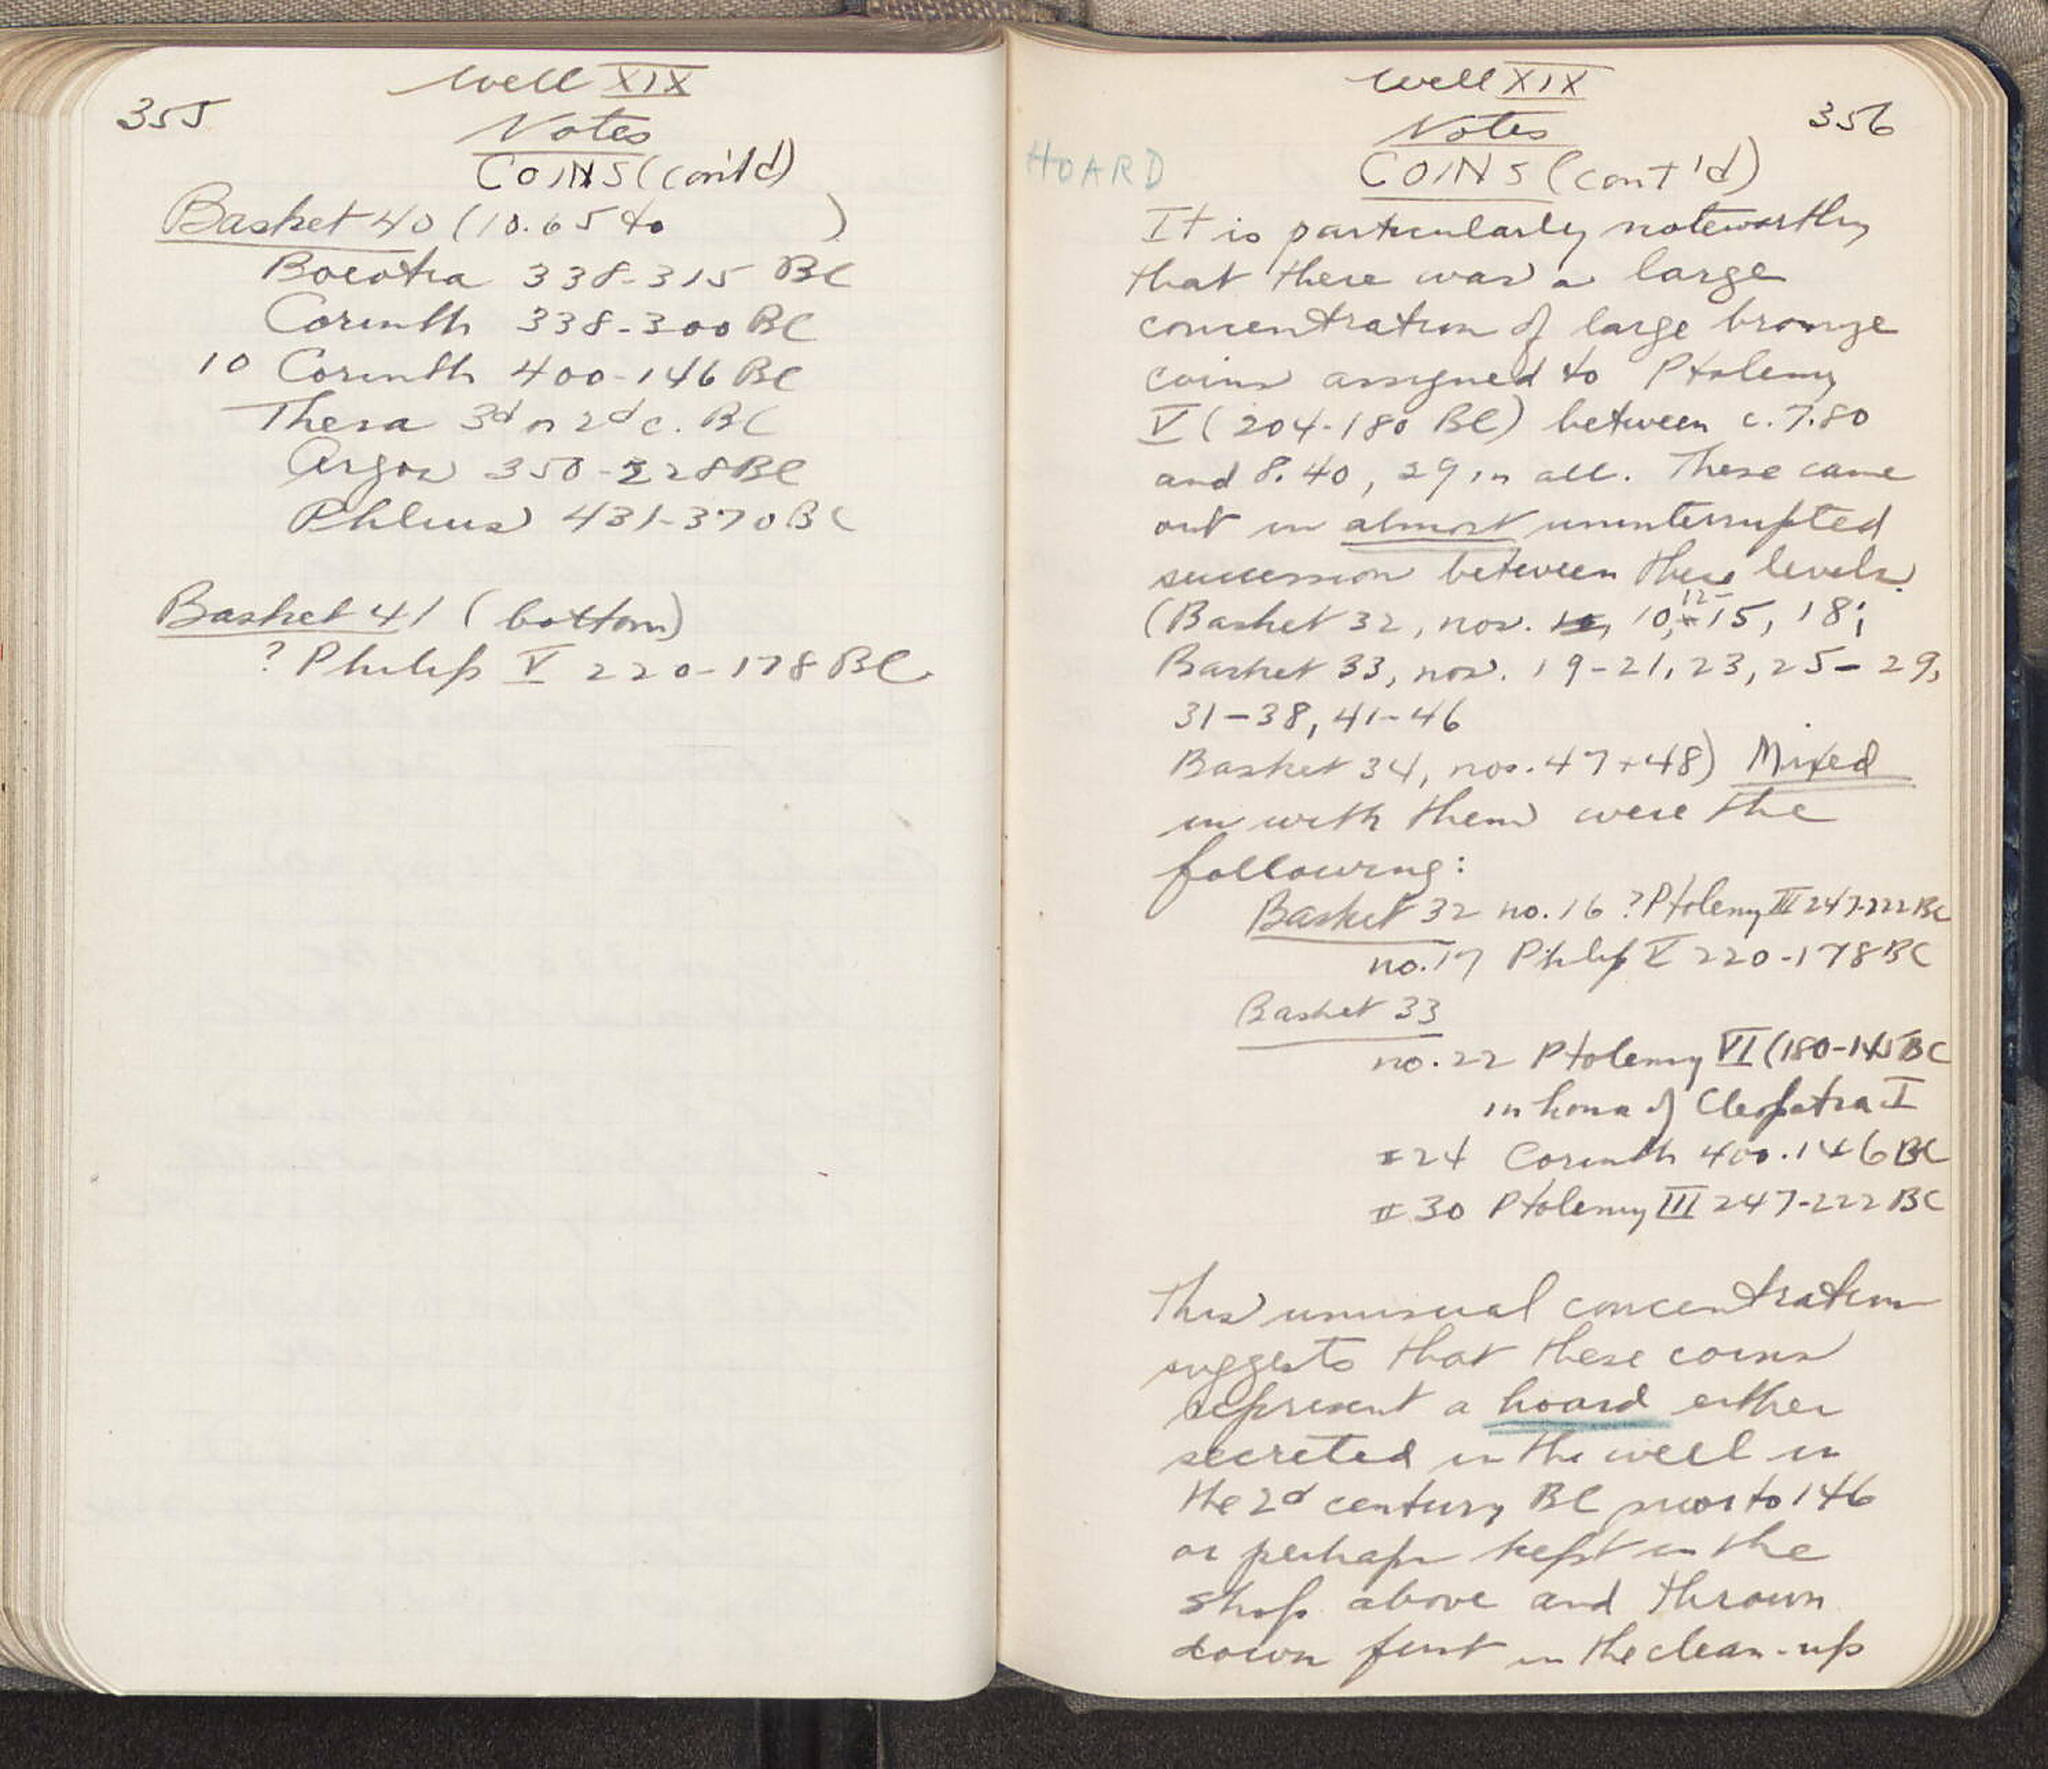 355
Well XIX
Notes
COINS (cont'd)
Basket 40 (10.65 to )
Boeotia 338-315 BC
Corinth 338-300 BC
10 Corinth 400-146 BC
Thera 3d or 2d c. BC
Argos 350-228 BC
Phlius 431-370 BC
Basket 41 (bottom)
? Philip V 220-178 BC
Well XIX
356
Notes
HOARD
COINS (cont'd)
It is particularly noteworthy
that there was a large
concentration of large bronze
coins assigned to Ptolemy
V (204-180 BC) between c. 7.80
and 8.40, 29 in all. These came
out in almost uninterrupted
succession between these levels.
(Basket 32, nos. 10, 12-15, 18;
Basket 33, nos. 19-21, 23, 25-29,
31-38, 41-46
Basket 34, nos. 47+48) Mixed
in with them were the
following:
Basket 32 no. 16 ? Ptolemy III 247-222 BC
no. 17 Philip V 220-178 BC
Basket 33
no. 22 Ptolemy VI (180-145 BC
in honor of Cleopatra I
# 24 Corinth 400-146 BC
# 30 Ptolemy III 247-222 BC
This unusual concentration
suggests that these coins
represent a hoard either
secreted in the well in
the 2d century BC prior to 146
or perhaps kept in the
shop above and thrown
down first in the clean-up